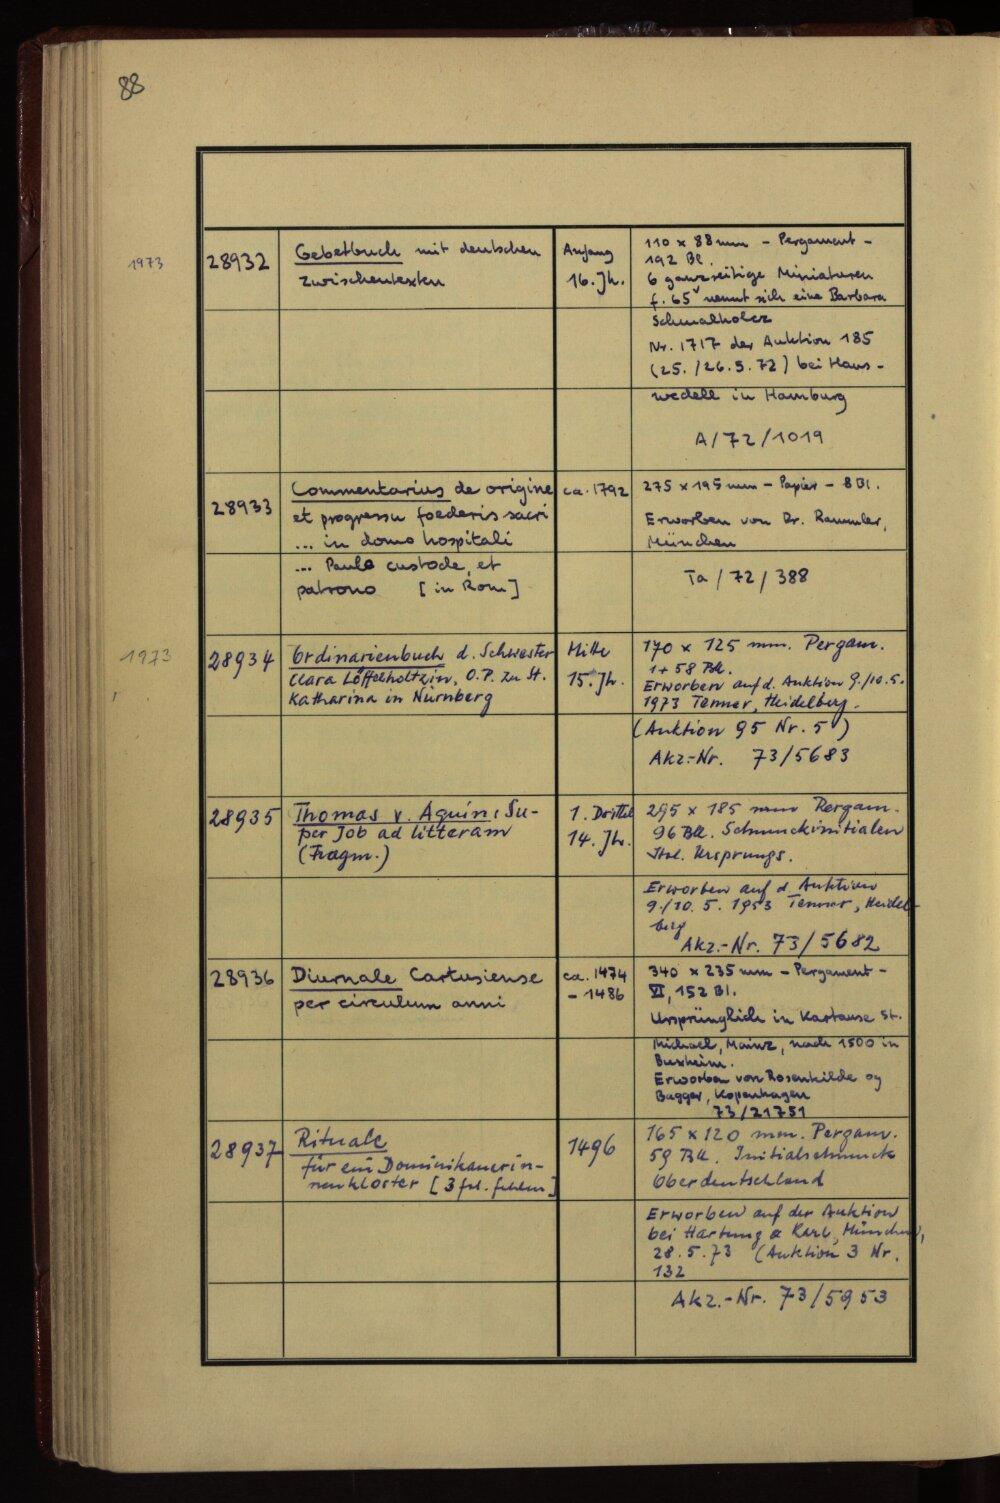 88
1973
28932
Gebetbuch mit deutschen
Zwischentexten
Anfang
16. Jh.
110 x 88 mm - Pergament -
192 Bl.
6 ganzseitige Miniaturen
f. 65v nennt sich eine Barbara
Schmalholcz
Nr. 1717 der Auktion 185
(25./26.5.72) bei Haus-
wedell in Hamburg
A/72/1019
28933
Commentarius de origine
et progressu foederis sacri
... in domo hospitali
... Paulo custode, et
patrono [in Rom]
ca. 1792
275 x 195 mm - Papier - 8 Bl.
Erworben von Dr. Rammler,
München
Ta/72/388
1973
28934
Ordinarienbuch d. Schwester
Clara Löffelholtzin, O.P. zu St.
Katharina in Nürnberg
Mitte
15. Jh.
170 x 125 mm. Pergam.
1 + 58 Bll.
Erworben auf d. Auktion 9./10.5.
1973 Tenner, Heidelberg.
(Auktion 95 Nr. 5)
Akz.-Nr. 73/5683
28935
Thomas v. Aquin: Su-
per Job ad litteram
(Fragm.)
1. Drittel
14. Jh.
295 x 185 mm Pergam.
96 Bll. Schmuckinitialen
Ital. Ursprungs.
Erworben auf d. Auktion
9./10. 5. 1953 Tenner, Heidel-
berg
Akz.-Nr. 73/5682
28936
Diurnale Cartusiense
per circulum anni
ca. 1474
- 1486
340 x 235 mm - Pergament -
VI, 152 Bl.
Ursprünglich in Kartause St.
Michael, Mainz, nach 1500 in
Buxheim.
Erworben von Rosenkilde og
Bagger, Kopenhagen
73/21751
28937
Rituale
für ein Dominikanerin-
nenkloster [3 fol. fehlen]
1496
165 x 120 mm. Pergam.
59 Bll. Initialschmuck
Oberdeutschland
Erworben auf der Auktion
bei Hartung & Karl, München,
28.5.73 (Auktion 3 Nr.
132
Akz.-Nr. 73/5953